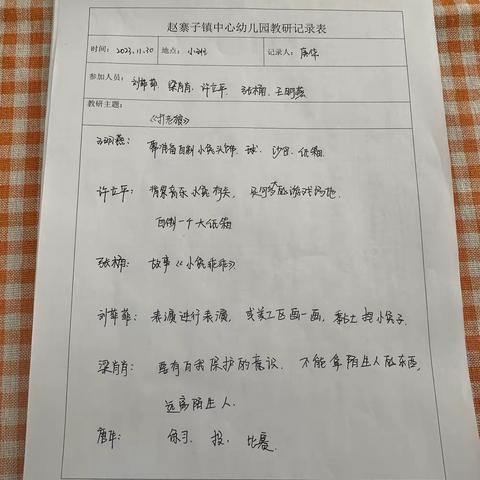 赵寨子镇中心幼儿园教研记录表
时间：2023.11.30 地点：小班 记录人：唐华
参加人员：刘菲菲，梁肖肖，许立平，张楠，王明燕
教研主题：
《打老狼》
王明燕：需准备自制小兔头饰、球、沙包、纸箱。
许立平：情景音乐小兔 ，足够多的游戏场地，
自制一个大纸箱
张楠：故事《小兔乖乖》
刘菲菲：表演进行表演，或美工区画一画，黏土捏小兔子。
梁肖肖：要有自我保护的意识、不能拿陌生人的东西，
远离陌生人。
唐华：练习、投、比赛